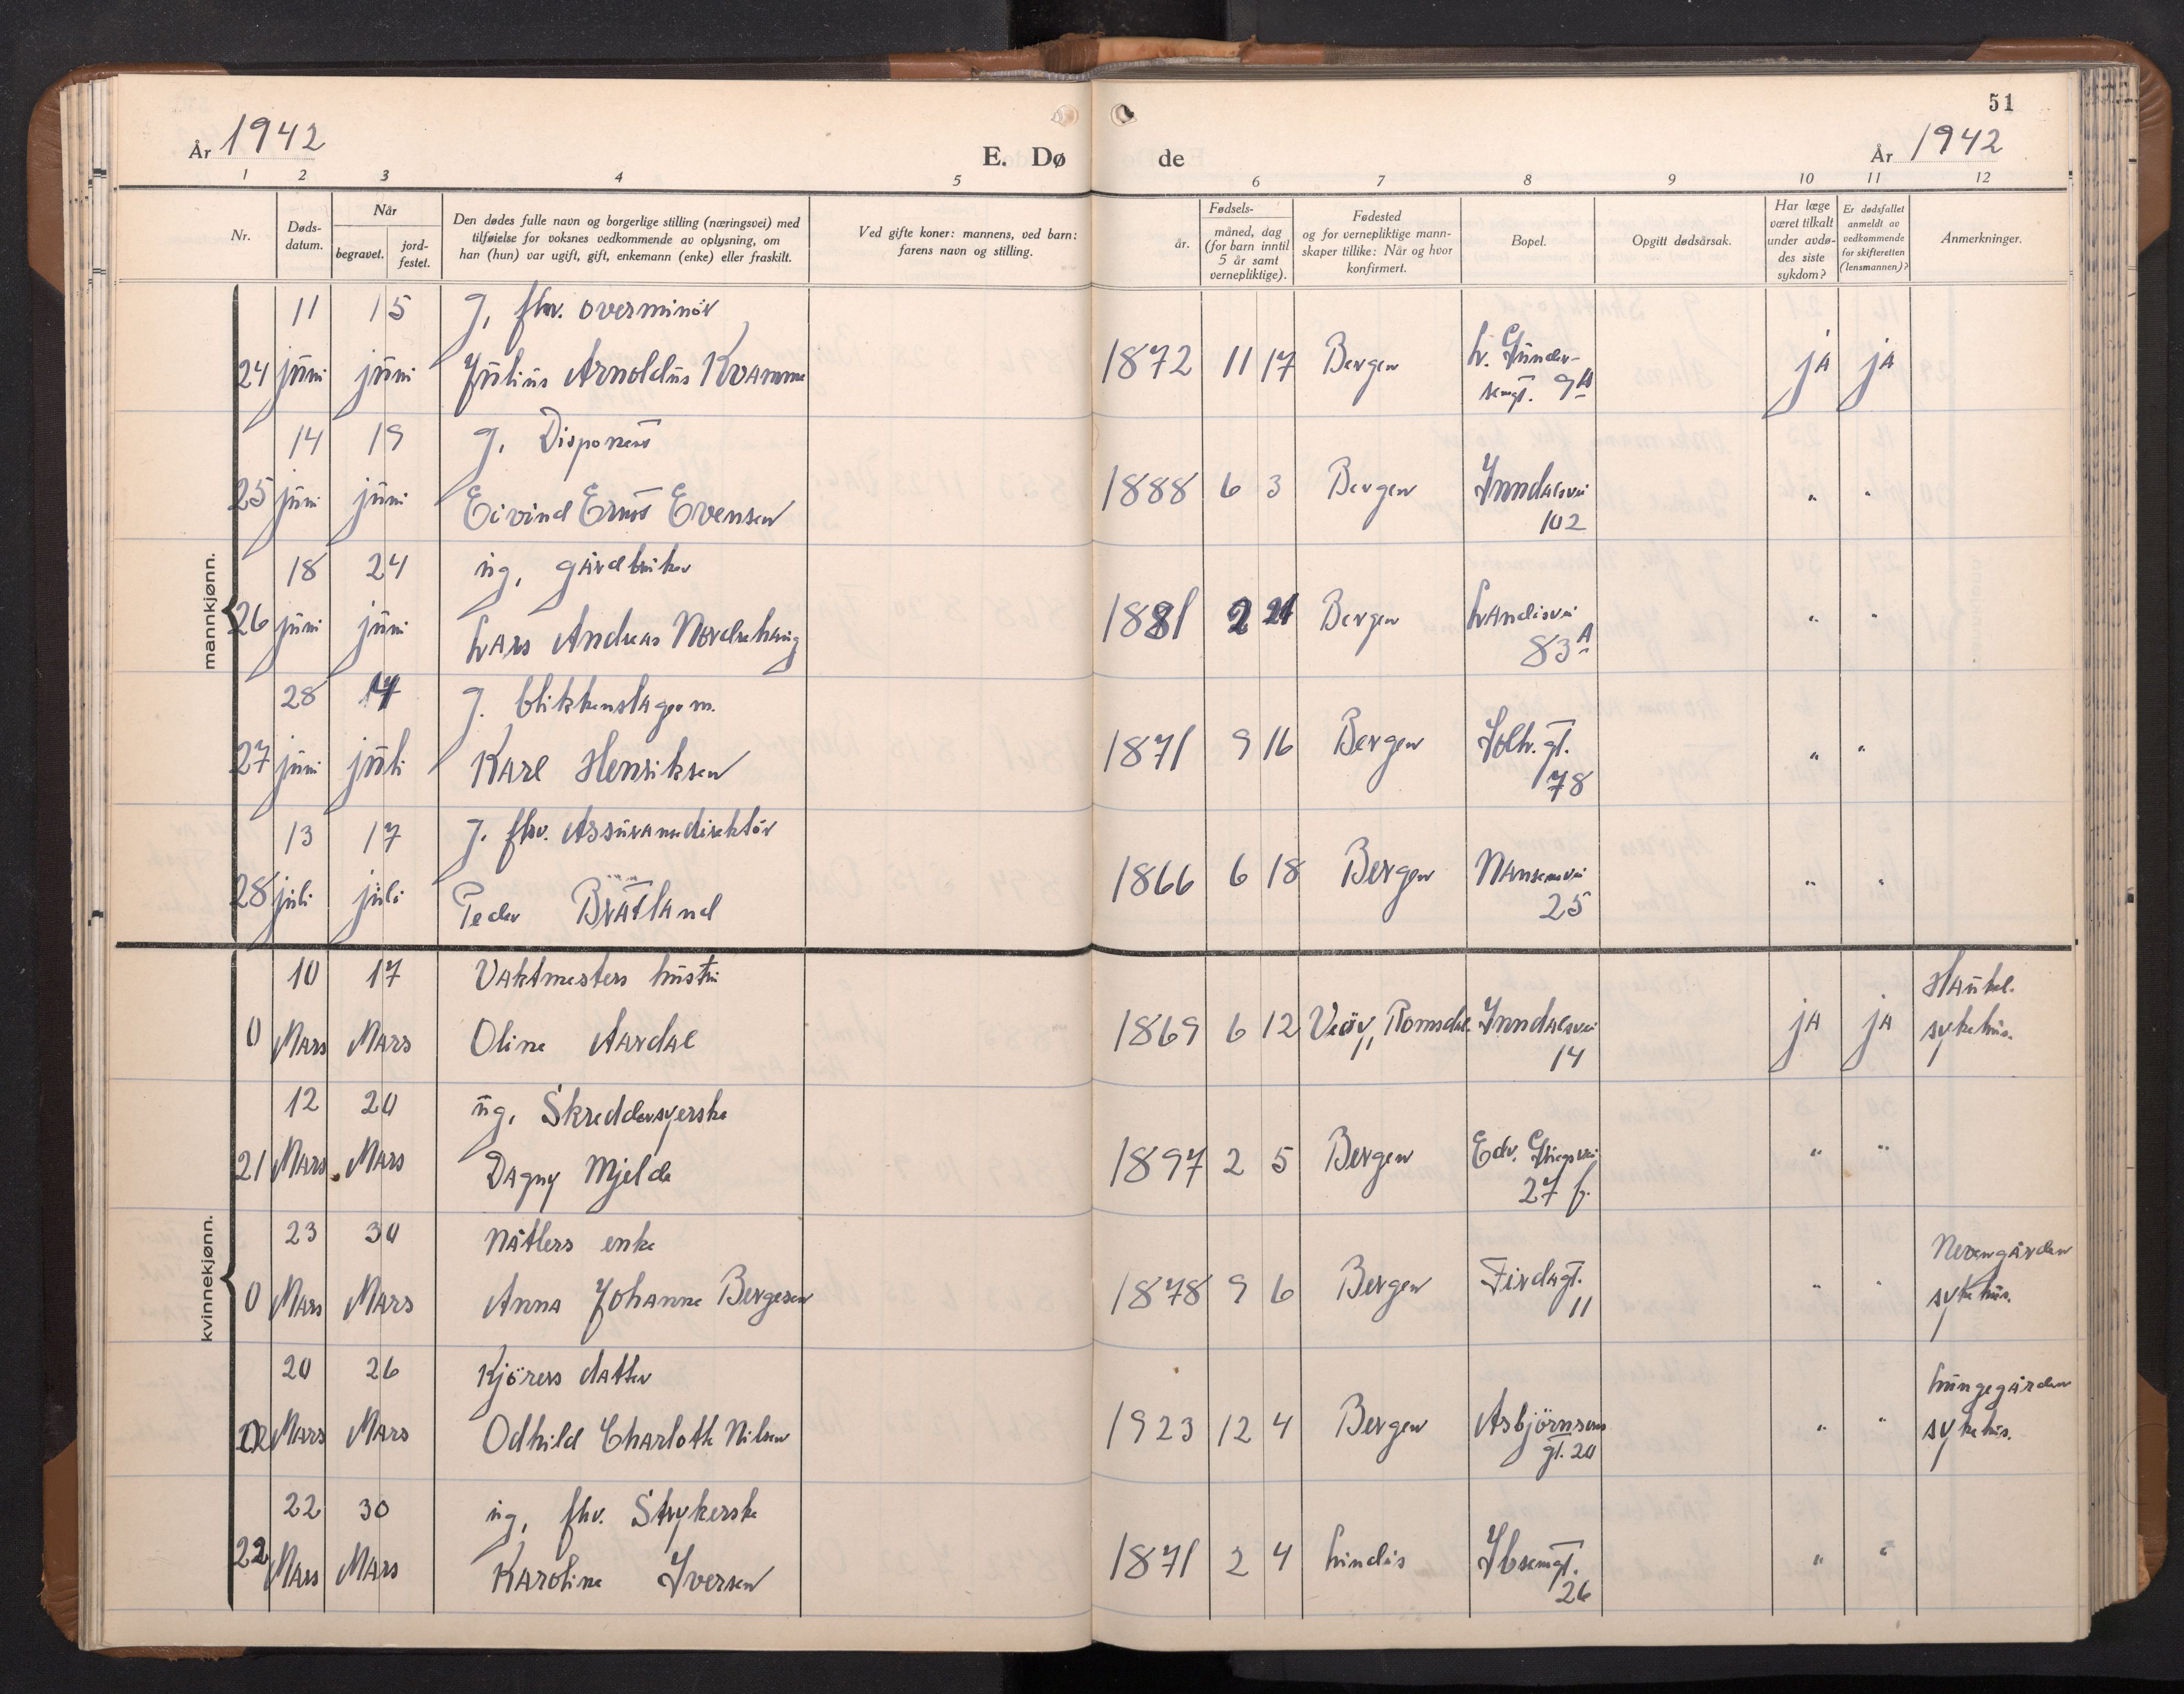 51
År 1942
E. Dø de
År 1942
1 2 3 4 5 6 7 8 9 10 11 12
Nr.
Døds-
datum.
Når
begravet.
jord-
festet.
Den dødes fulle navn og borgerlige stilling (næringsvei) med
tilføielse for voksnes vedkommende av oplysning, om
han (hun) var ugift, gift, enkemann (enke) eller fraskilt.
Ved gifte koner: mannens, ved barn:
farens navn og stilling.
Fødsels-
år.
måned, dag
(for barn inntil
5 år samt
vernepliktige).
Fødested
og for vernepliktige mann-
skaper tillike: Når og hvor
konfirmert.
Bopel.
Opgitt dødsårsak.
Har læge
været tilkalt
under avdø-
des siste
sykdom?
Er dødsfallet
anmeldt av
vedkommende
for skifteretten
(lensmannen)?
Anmerkninger.
mannkjønn.
11 15 g. fhv. overminör
24 juni juni Julius Arnoldus Kvamme 1872 11 17 Bergen L. Gunder-
semgt. 9A ja ja
14 19 g. Disponent
25 juni juni Eivind Ernst Evensen 1888 6 3 Bergen Inndalsvei
102 " "
18 24 ug. gårdbruker
26 juni juni Lars Andreas Nordrehaug 1881 2 21 Bergen Landåsvei
83A " "
28 g. blikkenslagerm.
27 juni juli Karl Henriksen 1871 9 16 Bergen Solh. gt.
78 " "
13 17 g. fhv. Assuransedirektör
28 juli juli Peder Bråtland 1866 6 18 Bergen Nansensvei
25 " "
kvinnekjønn.
10 17 Vaktmesters hustru
0 Mars Mars Oline Aardal 1869 6 12 Veöy, Romsdal Inndalsvei
14 ja ja Haukel.
sykehus.
12 20 ug. Skreddersyerske
21 Mars Mars Dagny Mjelde 1897 2 5 Bergen Edv. Griegsvei
27 f. " "
23 30 Nåtlers enke
0 Mars Mars Anna Johanne Bergesen 1878 9 6 Bergen Firdagt.
11 " " Nevengården
sykehus.
20 26 Kjörers datter
Mars Mars Odhild Charlotte Nilsen 1923 12 4 Bergen Asbjörnsens
gt. 20 " " Lungegården
sykehus.
22 30 ug. fhv. Strykerske
22 Mars Mars Karoline Iversen 1871 2 4 Lindås Ibsensgt.
26 " "